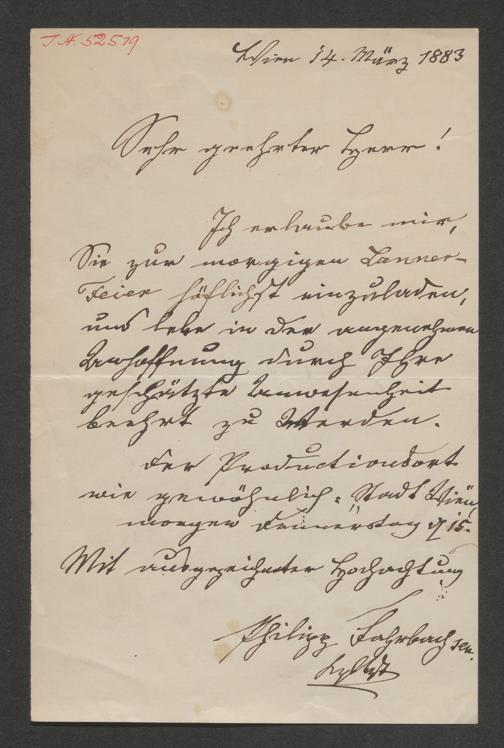 I.N. 52519
Wien 14. März 1883
Sehr geehrter Herr!
Ich erlaube mir,
Sie zur morgigen Lanner-
Feier höflichst einzuladen,
und lebe in der angenehmen
Anhoffnung durch Ihre
geschätzte Anwesenheit
beehrt zu werden.
Der Productionsort
wie gewöhnlich: "Stadt Wien"
morgen Donnerstag d. 15.
Mit ausgezeichneter Hochachtung
Philipp Fahrbach sen.